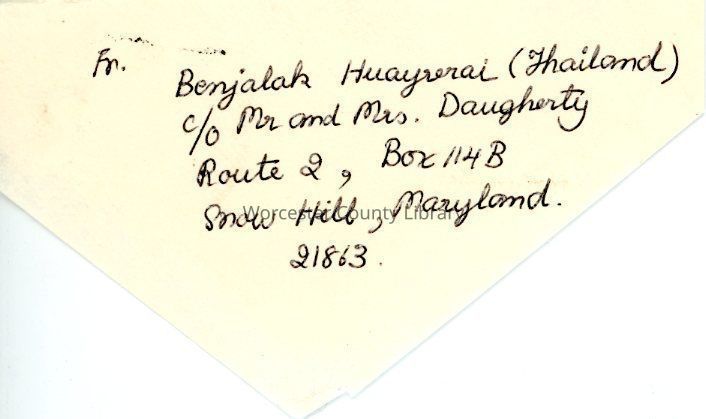 Fr.
Benjalak Huayrerai (Thailand)
c/o Mr and Mrs. Daugherty
Route 2, Box 114B
Snow Hill, Maryland.
Worcester County Library
21863.